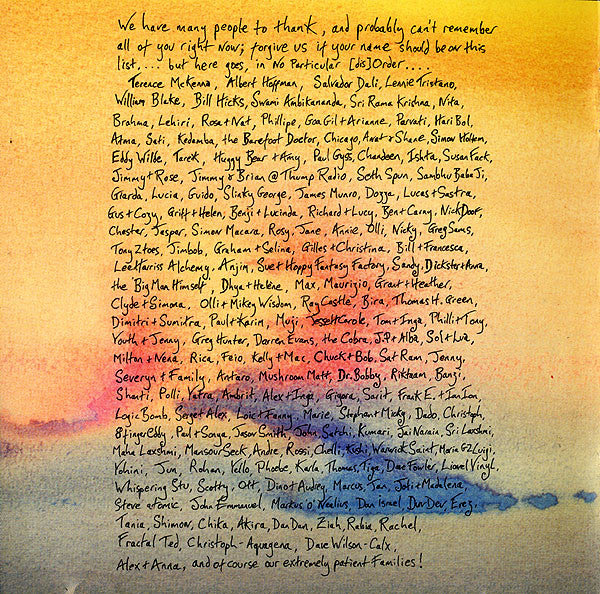 We have many people to thank, and probably can't remember
all of you right now; forgive us if your name should be on this
list.... but here goes, in No Particular [dis]Order....
Terence McKenna, Albert Hoffman, Salvador Dali, Lennie Tristano,
William Blake, Bill Hicks, Swami Ambikananda, Sri Rama Krishna, Nita,
Brahma, Lehiri, Rosa+Nat, Phillipe, Goa Gil+Arianne, Parvati, Hari Bol,
Atma, Sati, Kedamba, the Barefoot Doctor, Chicago, Awat+Shane, Simon Holtom,
Eddy Wilbe, Tarek, Huggy Bear+Amy, Paul Gyss, Chandeen, Ishta, Susan Fack,
Jimmy+Rose, Jimmy+Brian @ Thump Radio, Seth Spun, Sambhu Baba Ji,
Giarda, Lucia, Guido, Slinky George, James Munro, Dogga, Lucas+Sastra,
Gus+Cozy, Griff+Helen, Benji+Lucinda, Richard+Lucy, Ben+Carny, Nick Doof,
Chester, Jaspar, Simon Macara, Rosy, Jane, Annie, Olli, Nicky, Greg Sams,
Tony Ztoes, Jimbob, Graham+Selina, Gilles+Christina, Bill+Francesca,
Lee Harriss Alchemy, Anjin, Sue+Hoppy Fantasy Factory, Sandy, Dickster+Anna,
the Big Man Himself, Dhya+Helene, Max, Maurizio, Grant+Heather,
Clyde+Simona, Olli+Mikey Wisdom, Ray Castle, Bira, Thomas H. Green,
Dimitri+Sumitra, Paul+Karin, Muji, Jesse+Carole, Tom+Inga, Phil+Tony,
Youth+Jenny, Greg Hunter, Darren Evans, the Cobra, J.P+Alba, Sol+Lua,
Miltan+Nena, Rica, Feio, Kelly+Mac, Chuck+Bob, Sat Ram, Jenny,
Severyn+Family, Antaro, Mushroom Matt, Dr. Bobby, Rikteam, Banzi,
Shanti, Polli, Yatra, Ambrit, Alex+Inga, Grigora, Sarit, Frank E.+Ian Lon,
Logic Bomb, Serge+Alex, Loic+Fanny, Marie, Stephan+Micky, Dado, Christoph,
8 finger Eddy, Paul+Sonya, Jason Smith, John, Satshi, Kumari, Jai Narain, Sri Laxshmi,
Maha Laxshmi, Mansour Seck, Andre, Rossi, Chelli, Kishi, Warwick Saint, Maria G2 Luigi,
Yohini, Jun, Rohan, Yello, Phoebe, Karla, Thomas, Tiga, Dave Fowler, Lionel Vinyl,
Whispering Stu, Scotty, Ott, Dino+Audrey, Marcus, Jan, Joti+Madalena,
Steve atomic, John Emmanuel, Markus o'Nealius, Dan Israel, DuvDev, Erez,
Tania, Shimon, Chika, Akira, Dan Dan, Ziah, Rabia, Rachel,
Fractal Ted, Christoph-Aquagena, Dave Wilson-Calx,
Alex+Anna, and of course our extremely patient Families!